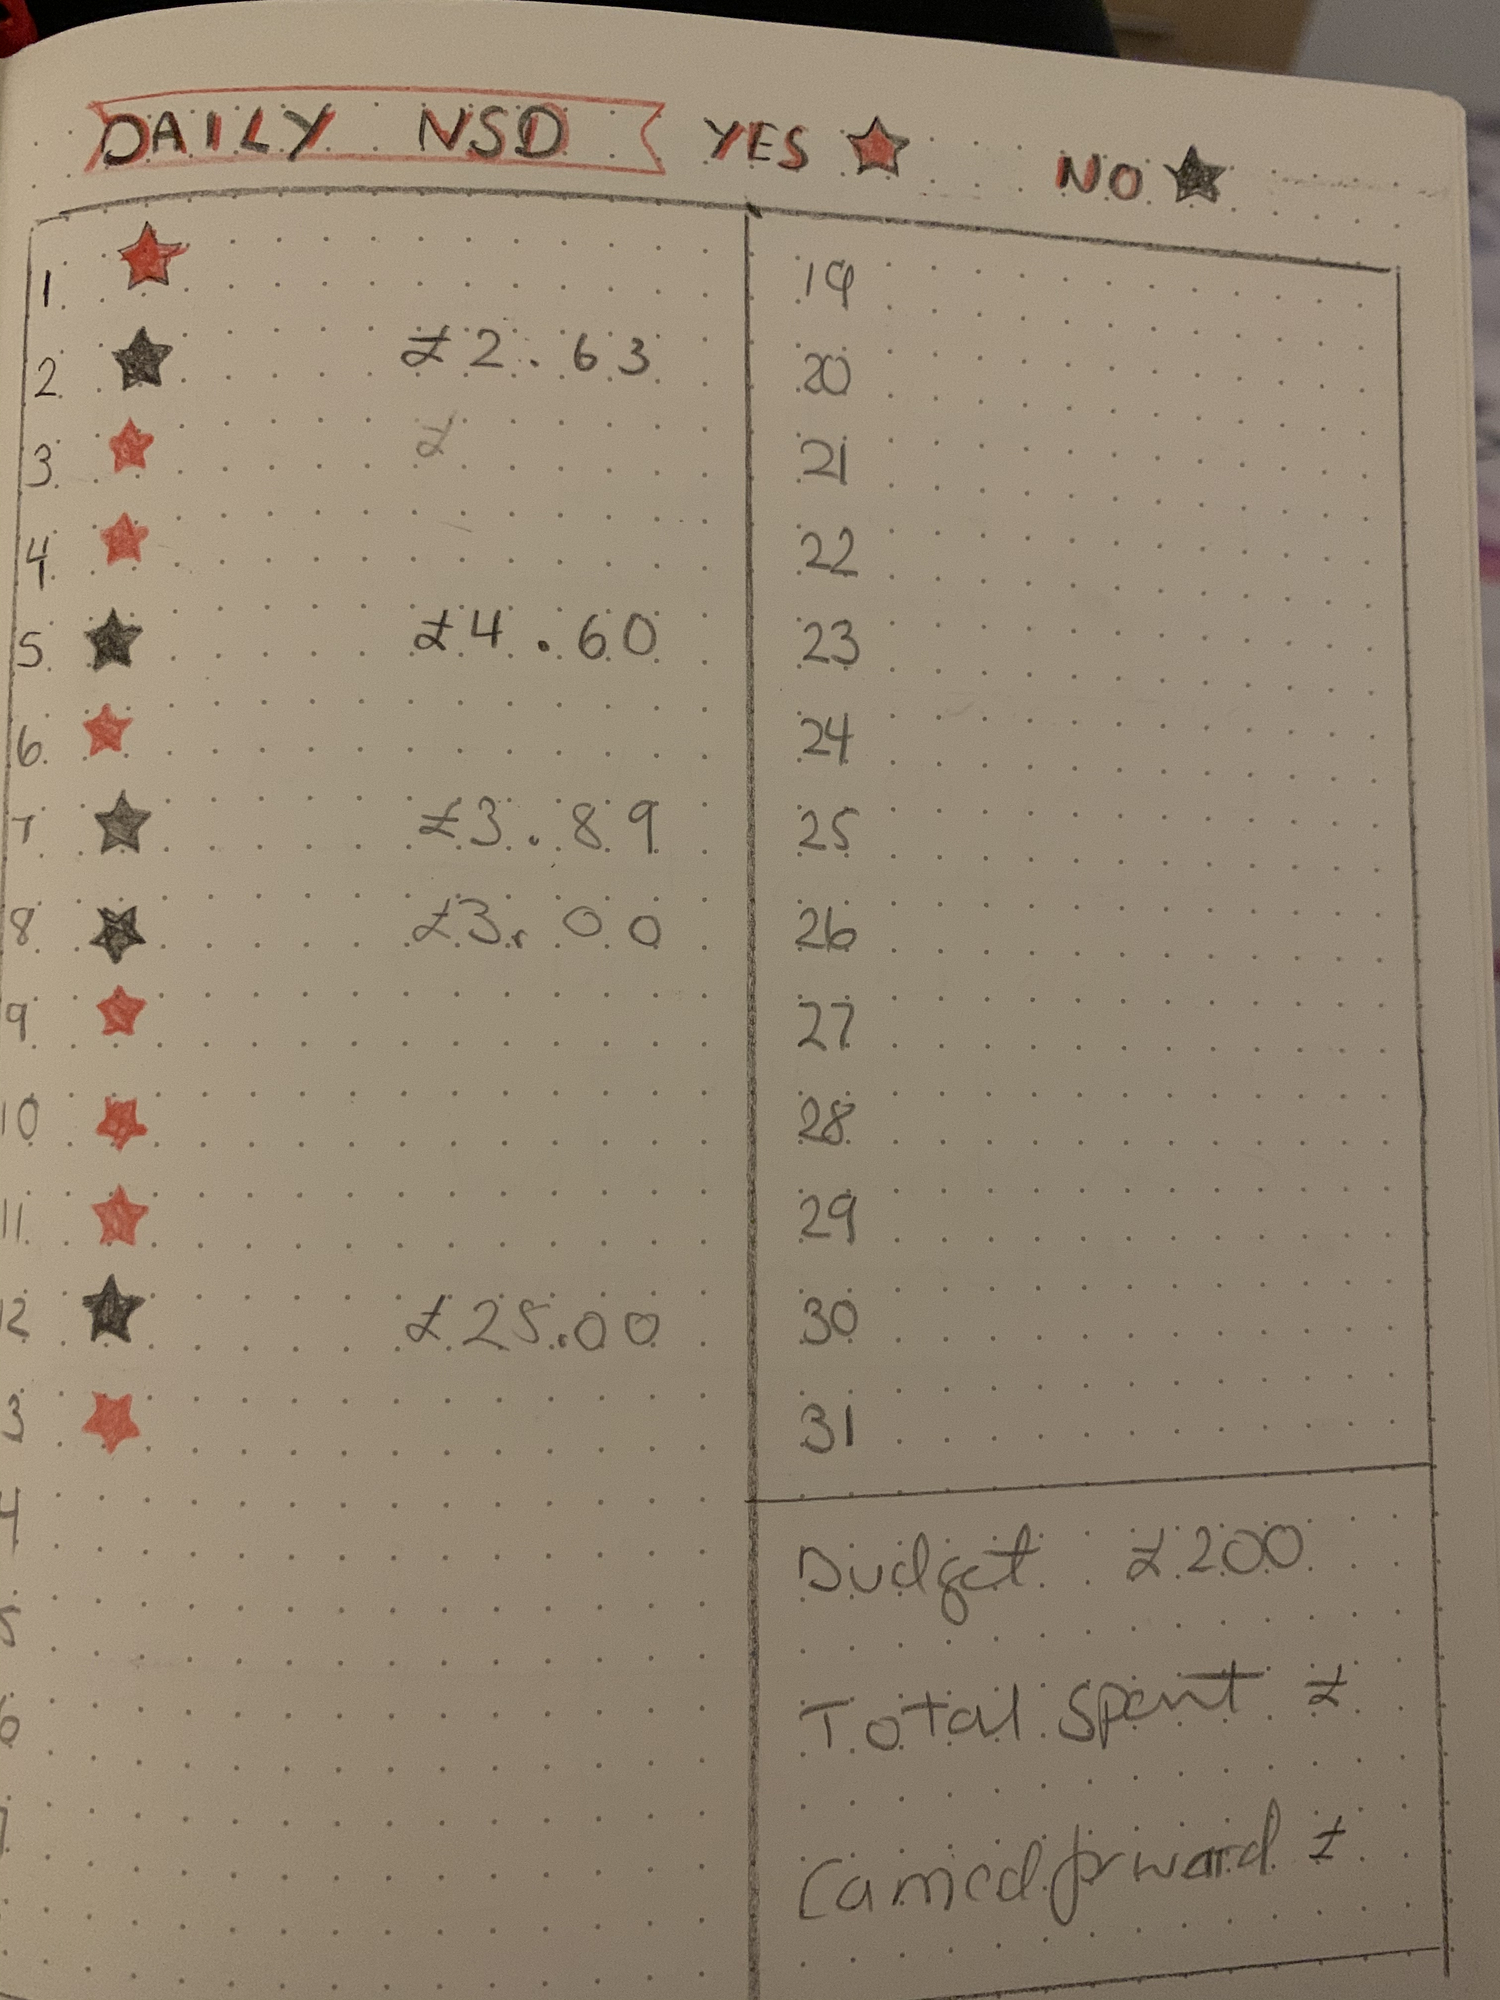 DAILY NSD YES NO
1
2 £2.63
3 £
4
5 £4.60
6
7 £3.89
8 £3.00
9
10
11
12 £25.00
3
4
5
6
19
20
21
22
23
24
25
26
27
28
29
30
31
Budget £200
Total Spent £
Carried forward £